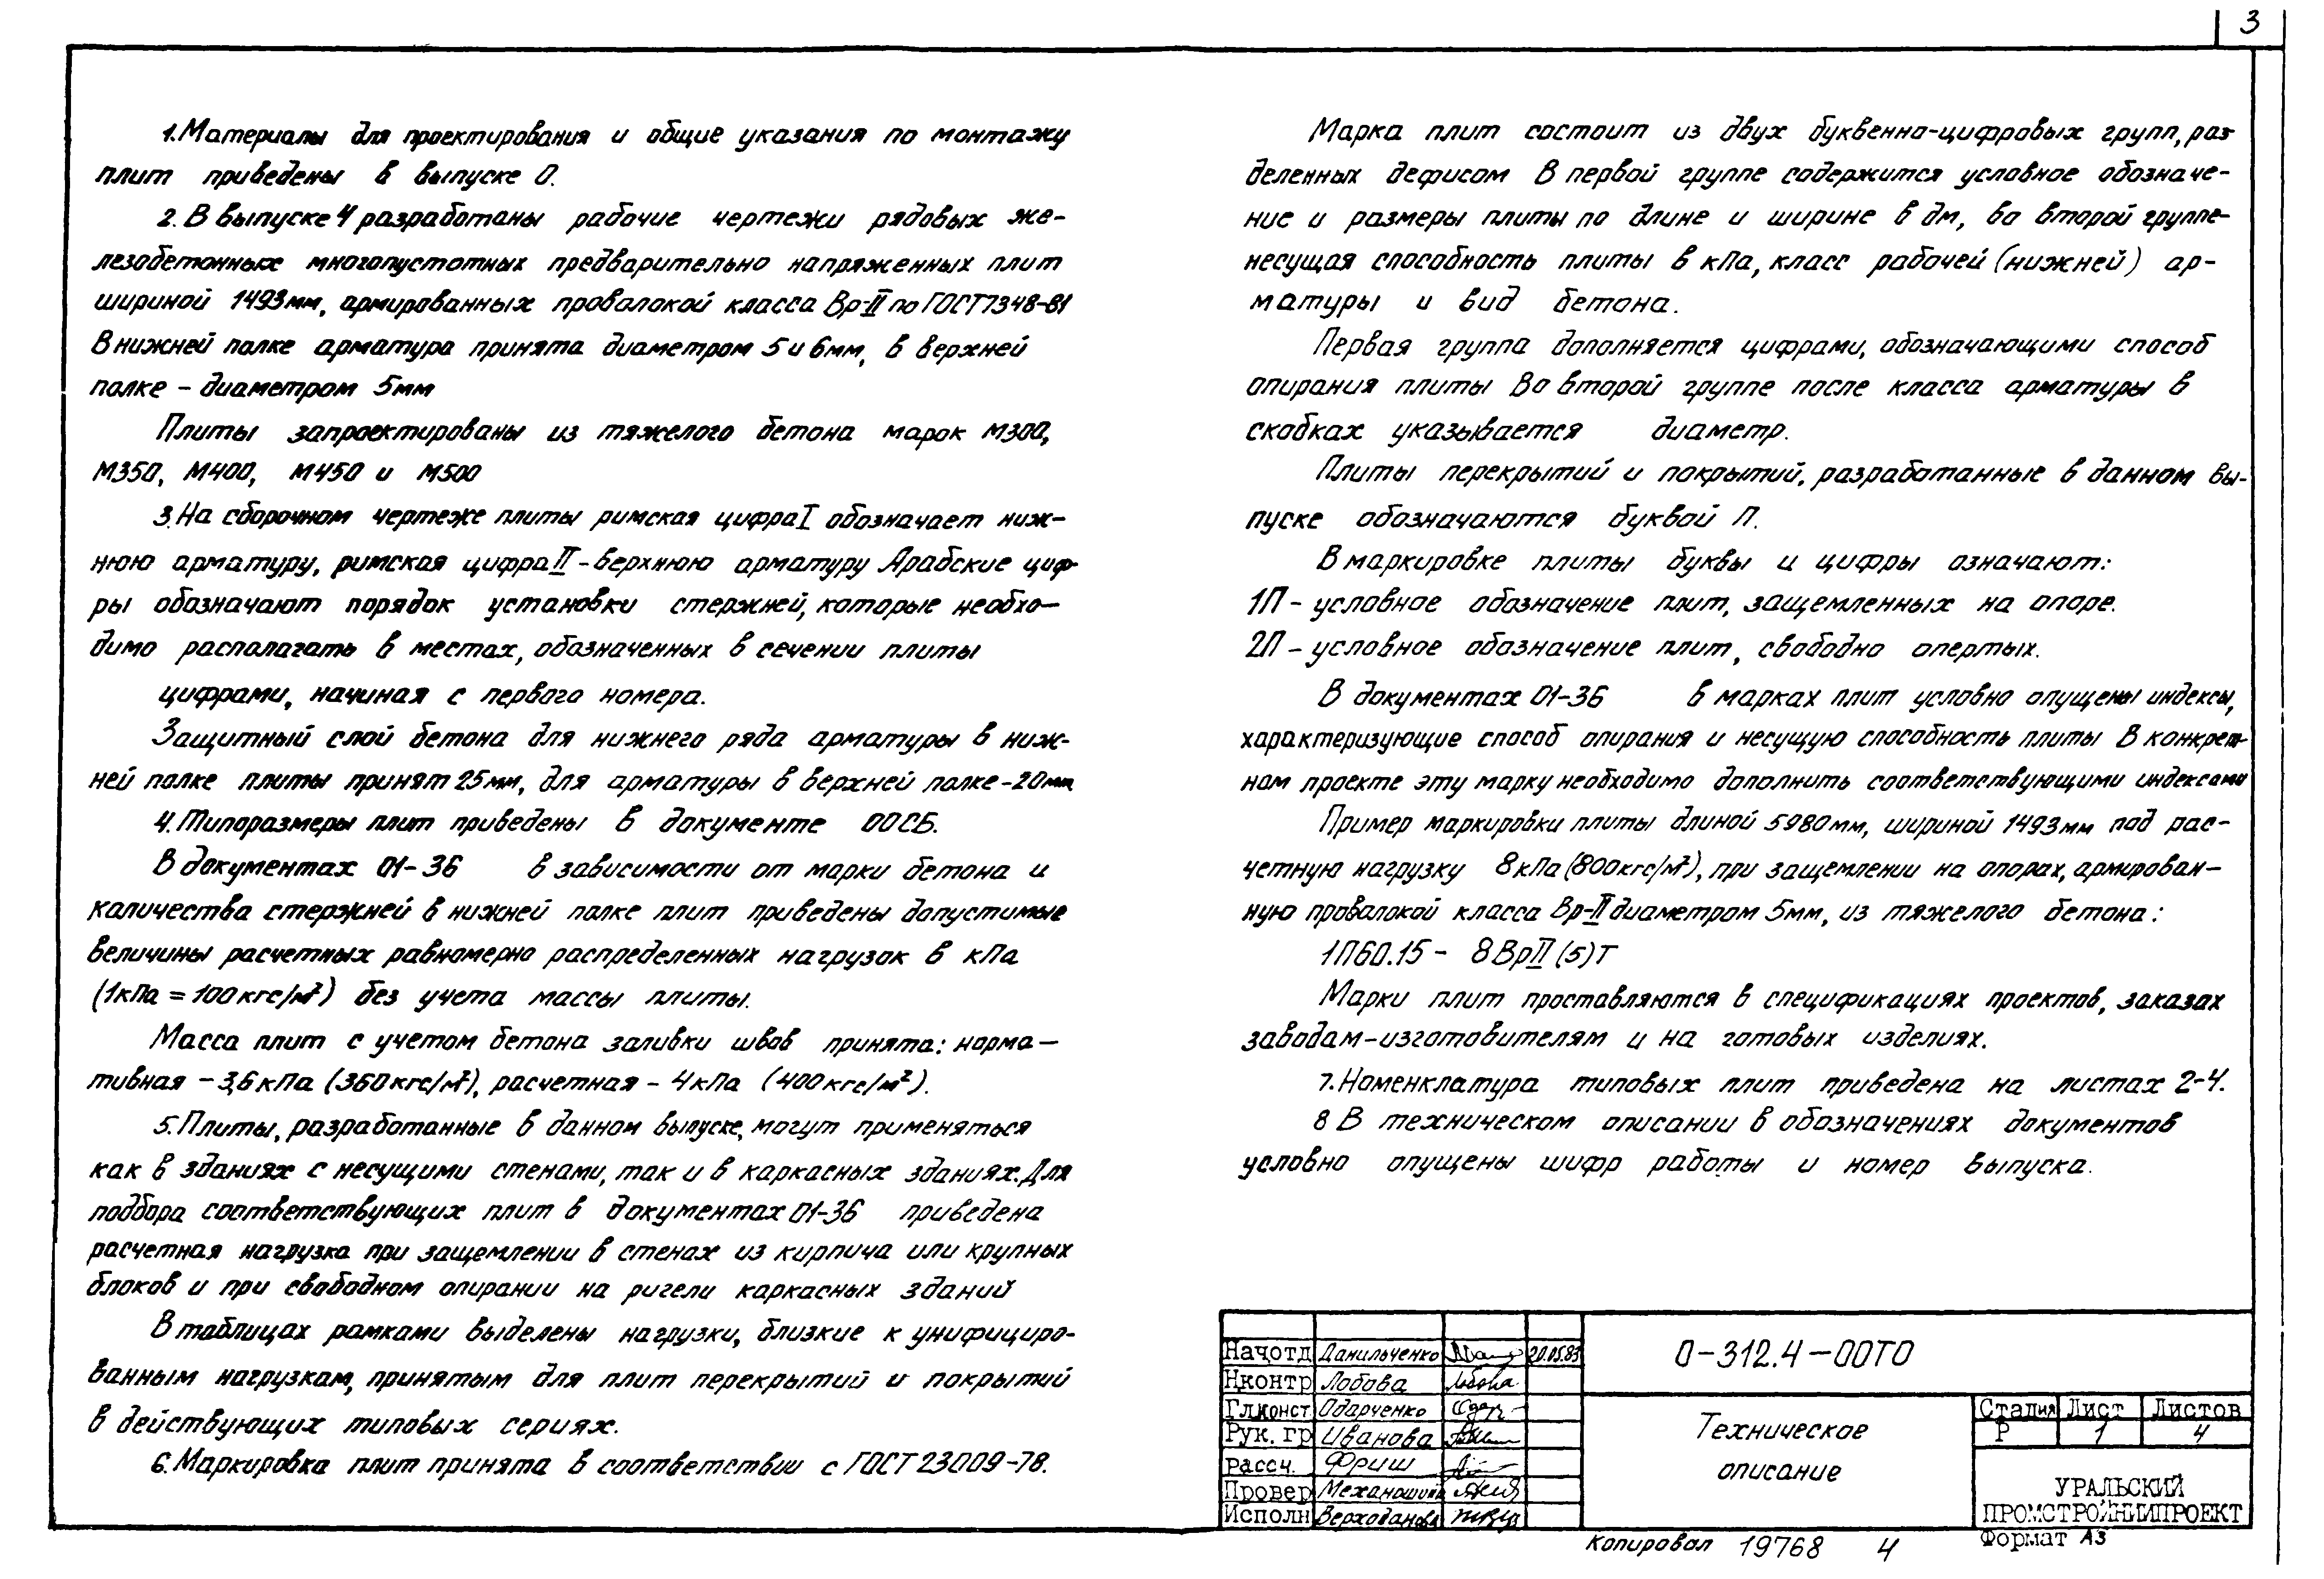 3
1. Материалы для проектирования и общие указания по монтажу
плит приведены в выпуске 0.
2. В выпуске 4 разработаны рабочие чертежи рядовых же-
лезобетонных многопустотных предварительно напряженных плит
шириной 1493мм, армированных проволокой класса Вр-II по ГОСТ 7348-81
В нижней полке арматура принята диаметром 5 и 6мм, в верхней
полке - диаметром 5мм
Плиты запроектированы из тяжелого бетона марок М300,
М350, М400, М450 и М500
3. На сборочном чертеже плиты римская цифра I обозначает ниж-
нюю арматуру, римская цифра II - верхнюю арматуру Арабские циф-
ры обозначают порядок установки стержней, которые необхо-
димо располагать в местах, обозначенных в сечении плиты
цифрами, начиная с первого номера.
Защитный слой бетона для нижнего ряда арматуры в ниж-
ней полке плиты принят 25мм, для арматуры в верхней полке - 20мм
4. Типоразмеры плит приведены в документе 00СБ.
В документах 01-36 в зависимости от марки бетона и
количества стержней в нижней полке плит приведены допустимые
величины расчетных равномерно распределенных нагрузок в кПа
(1кПа = 100кгс/м²) без учета массы плиты.
Масса плит с учетом бетона заливки швов принята: норма-
тивная - 3,6кПа (360кгс/м²), расчетная - 4кПа (400кгс/м²).
5. Плиты, разработанные в данном выпуске, могут применяться
как в зданиях с несущими стенами, так и в каркасных зданиях. Для
подбора соответствующих плит в документах 01-36 приведена
расчетная нагрузка при защемлении в стенах из кирпича или крупных
блоков и при свободном опирании на ригели каркасных зданий
В таблицах рамками выделены нагрузки, близкие к унифициро-
ванным нагрузкам, принятым для плит перекрытий и покрытий
в действующих типовых сериях.
6. Маркировка плит принята в соответствии с ГОСТ 23009-78.
Марка плит состоит из двух буквенно-цифровых групп, раз-
деленных дефисом В первой группе содержится условное обозначе-
ние и размеры плиты по длине и ширине в дм, во второй группе-
несущая способность плиты в кПа, класс рабочей (нижней) ар-
матуры и вид бетона.
Первая группа дополняется цифрами, обозначающими способ
опирания плиты Во второй группе после класса арматуры в
скобках указывается диаметр.
Плиты перекрытий и покрытий, разработанные в данном вы-
пуске обозначаются буквой П.
В маркировке плиты буквы и цифры означают:
1П - условное обозначение плит, защемленных на опоре.
2П - условное обозначение плит, свободно опертых.
В документах 01-36 в марках плит условно опущены индексы,
характеризующие способ опирания и несущую способность плиты В конкрет-
ном проекте эту марку необходимо дополнить соответствующими индексами
Пример маркировки плиты длиной 5980мм, шириной 1493мм под рас-
четную нагрузку 8кПа (800кгс/м²), при защемлении на опорах, армирован-
ную проволокой класса Вр-II диаметром 5мм, из тяжелого бетона:
1П60.15 - 8ВрII(5)Т
Марки плит проставляются в спецификациях проектов, заказах
заводам-изготовителям и на готовых изделиях.
7. Номенклатура типовых плит приведена на листах 2-4.
8 В техническом описании в обозначениях документов
условно опущены шифр работы и номер выпуска.
Нач.отд Данильченко 20.05.83
Н.контр Лобова
Гл.конст Одарченко
Рук. гр Иванова
Рассч. Фриш
Провер
Исполн Верходанова
0-312.4-00ТО
Техническое
описание
Стадия Лист Листов
Р 1 4
УРАЛЬСКИЙ
ПРОМСТРОЙНИИПРОЕКТ
Копировал 19768 4
Формат А3